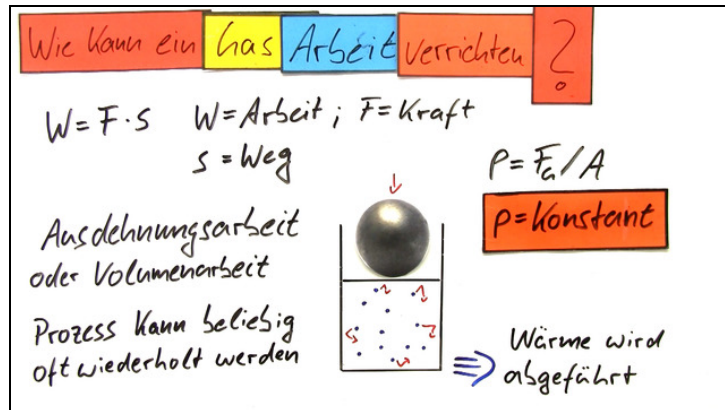 Wie kann ein Gas Arbeit verrichten ?
W = F · s   W = Arbeit ; F = Kraft
s = Weg
p = Fa / A
p = Konstant
Ausdehnungsarbeit
oder Volumenarbeit
Prozess kann beliebig
oft wiederholt werden
Wärme wird
abgeführt